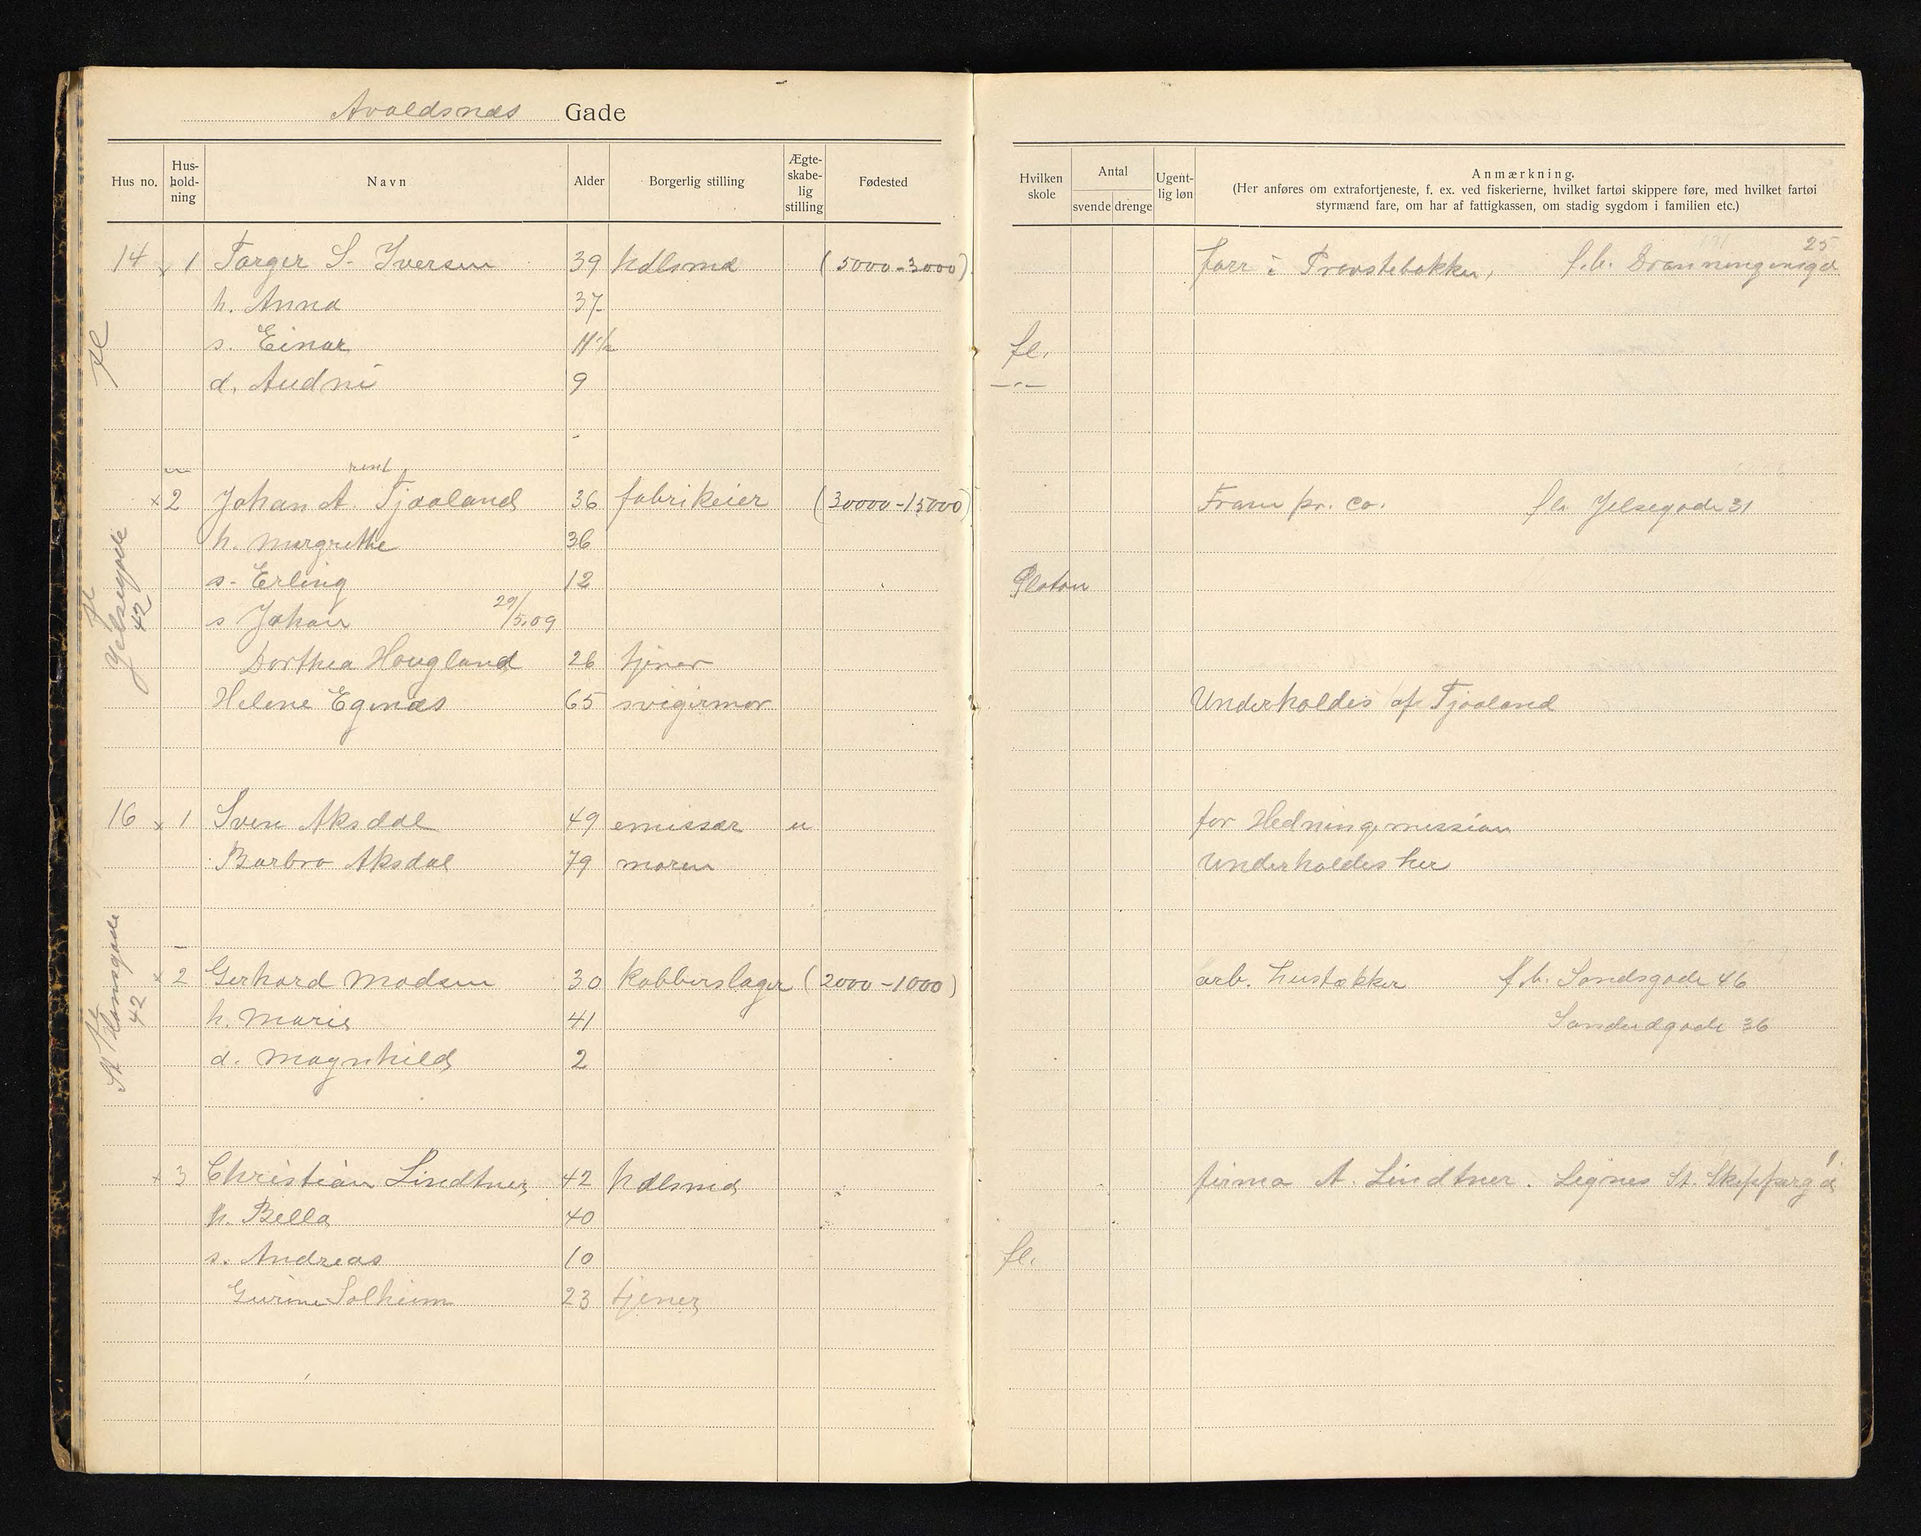 Avaldsnæs Gade
Hus no. Hus-hold-ning Navn Alder Borgerlig stilling Ægte-skabe-lig stilling Fødested Hvilken skole Antal svende drenge Ugent-lig løn Anmærkning.
(Her anføres om extrafortjeneste, f. ex. ved fiskerierne, hvilket fartøi skippere føre, med hvilket fartøi
styrmænd fare, om har af fattigkassen, om stadig sygdom i familien etc.)
25
14 x 1 Torger S. Iversen 39 hdlsmd (5000-3000) forr i Provstebakken, f.b. Dronningensgd
h. Anna 37
s. Einar 11 1/2 fl.
d. Audni 9 — " —
fl
rent
x 2 Johan A. Tjoaland 36 fabrikeier (30000-15000) Fram pr. Co. fl. Jelsegade 31
h. Margrethe 36
s. Erling 12 Platon
s Johan 29/5.09
Dorthea Hougland 26 tjener
Helene Egenæs 65 svigermor Underholdes af Tjoaland
fl Jelsegade 42
16 x 1 Sven Aksdal 49 emissær u for Hedningemission
Barbro Aksdal 79 moren Underholdes her
x 2 Gerhard Madsen 30 kobberslager (2000-1000) arb. hustækker f.b. Sandsgade 46
h. Marie 41 36
d. Magnhild 2
fl St Hansgade 42
x 3 Christian Lindtner 42 hdlsmd firma A. Lindtner. Lignes St. Skippergd
h. Bella 40
s. Andreas 10 fl.
Gurine Solheim 23 tjener